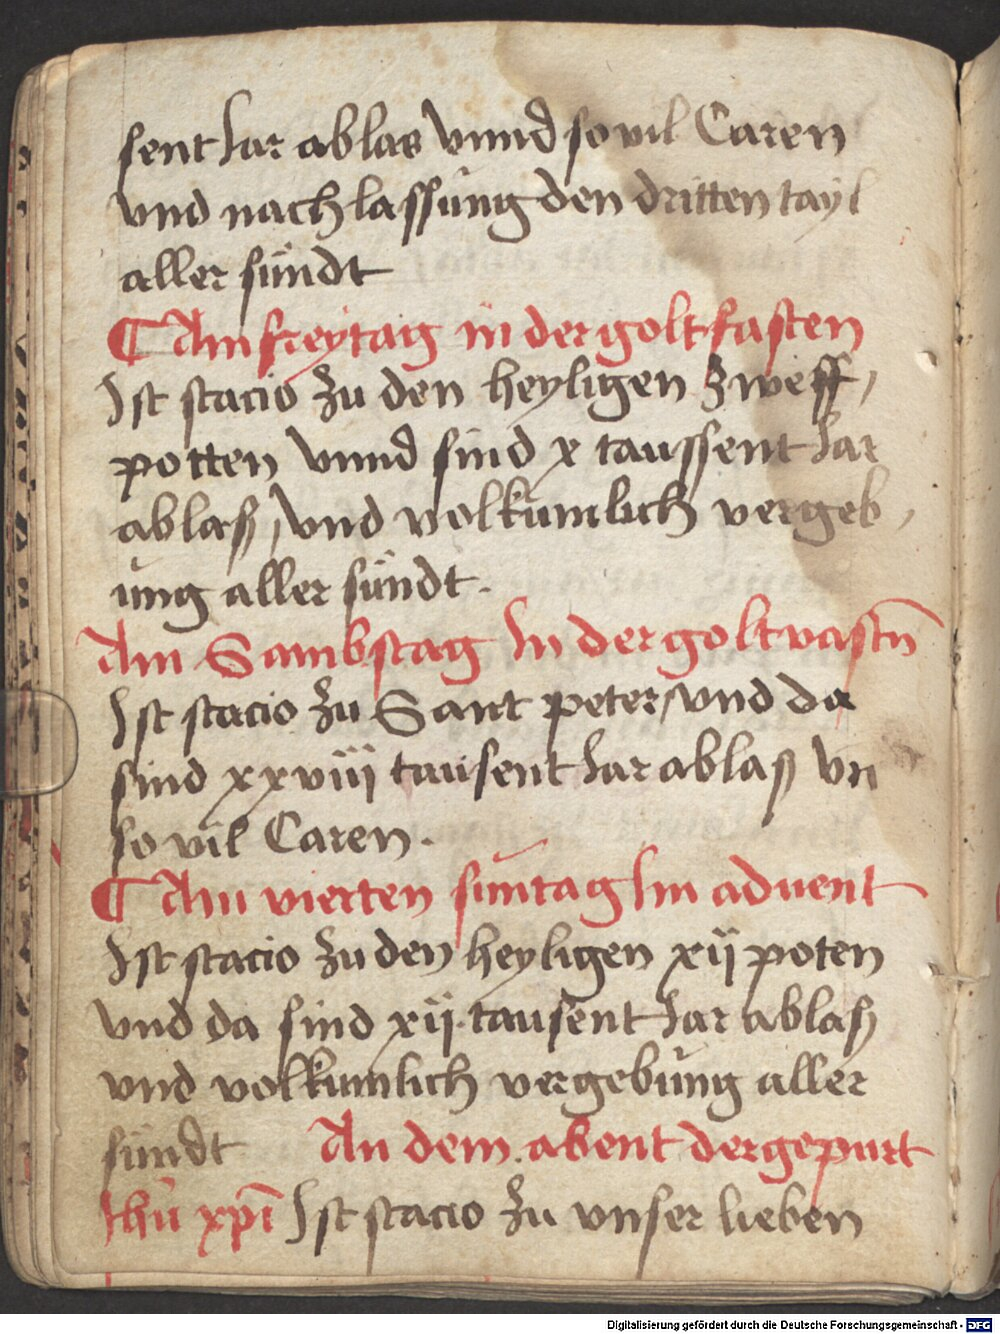 sent Jar ablas vnnd so vil Caren
vnd nach lassung den dritten tayl
aller sündt
¶ Am freytag in der goltfasten
Ist stacio zu den heyligen zweff,
potten vnnd sind x taussent Jar
ablaß, vnd volkumlich vergeb,
ung aller sündt.
Am Sambstag In der goltvastn̄
Ist stacio zu Sant peter, vnd da
sind xxviii tausent Jar ablaß vn
so vil Caren.
¶ Am vierten suntag Im aduent
Ist stacio zu den heyligen xij poten
vnd da sind xij. tausent Jar ablaß
vnd volkumlich vergebung aller
sündt An dem abent der gepurt
Jhū xp̄i Ist stacio zu vnser lieben
Digitalisierung gefördert durch die Deutsche Forschungsgemeinschaft - DFG